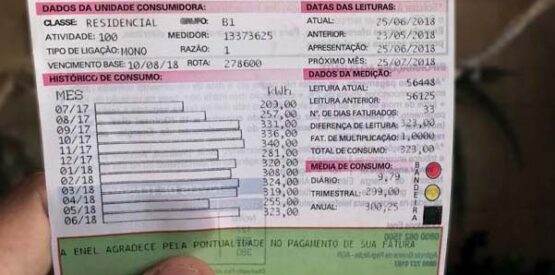 DADOS DA UNIDADE CONSUMIDORA:
CLASSE: RESIDENCIAL GRUPO: B1
ATIVIDADE: 100 MEDIDOR: 13373625
TIPO DE LIGAÇÃO: MONO RAZÃO: 1
VENCIMENTO BASE: 10/08/18 ROTA: 278600
HISTÓRICO DE CONSUMO:
MES kWh
07/17 209,00
08/17 257,00
09/17 331,00
10/17 336,00
11/17 340,00
12/17 281,00
01/18 320,00
02/18 308,00
03/18 324,00
04/18 319,00
05/18 255,00
06/18 323,00
DATAS DAS LEITURAS:
ATUAL: 25/06/2018
ANTERIOR: 23/05/2018
APRESENTAÇÃO: 25/06/2018
PRÓXIMO MÊS: 25/07/2018
DADOS DA MEDIÇÃO:
LEITURA ATUAL: 56448
LEITURA ANTERIOR: 56125
N°. DE DIAS FATURADOS: 33
DIFERENÇA DE LEITURA: 323,00
FAT. DE MULTIPLICAÇÃO: 1,0000
TOTAL DE CONSUMO: 323,00
MÉDIA DE CONSUMO:
DIÁRIO: 9,79
TRIMESTRAL: 299,00
ANUAL: 300,25
BANDEIRA
A ENEL AGRADECE PELA PONTUALIDADE NO PAGAMENTO DE SUA FATURA